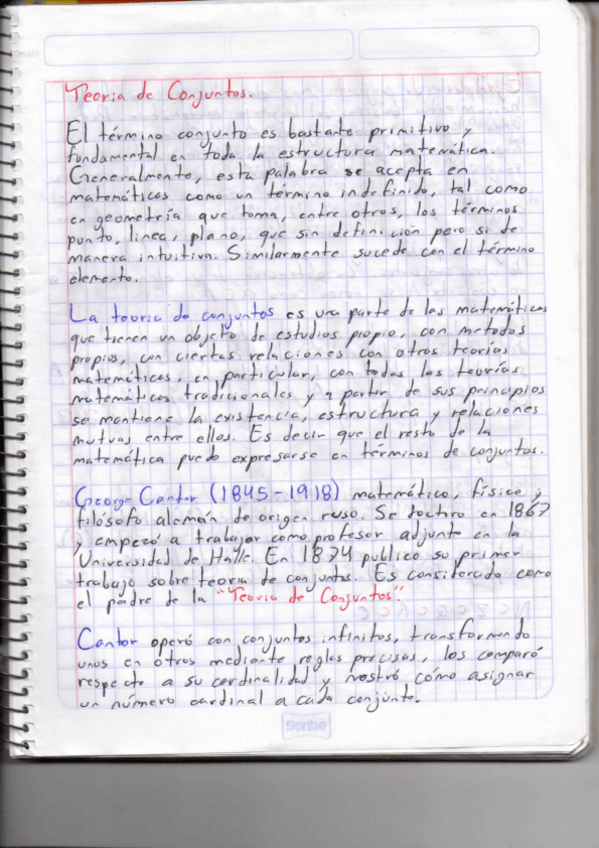 Teoria de Conjuntos.
El término conjunto es bastante primitivo y
fundamental en toda la estructura matemática.
Generalmente, esta palabra se acepta en
matemáticas como un término indefinido, tal como
en geometría que toma, entre otros, los términos
punto, linea, plano, que sin definición pero si de
manera intuitiva. Similarmente sucede con el término
elemento.
La teoria de conjuntos es una parte de las matemáticas
que tienen un objeto de estudios propio, con metodos
propios, con ciertas relaciones con otras teorías
matemáticas, en particular, con todas las teorías
matemáticas tradicionales y a partir de sus principios
se mantiene la existencia, estructura y relaciones
mutuas entre ellos. Es decir que el resto de la
matemática puede expresarse en términos de conjuntos.
George Cantor (1845-1918) matemático, físico y
filósofo alemán de origen ruso. Se doctoro en 1867
y empezó a trabajar como profesor adjunto en la
Universidad de Halle. En 1874 publico su primer
trabajo sobre teoria de conjuntos. Es considerado como
el padre de la "Teoria de Conjuntos".
Cantor operó con conjuntos infinitos, transformando
unos en otros mediante reglas precisas, los comparó
respecto a su cardinalidad y mostró cómo asignar
un número cardinal a cada conjunto.
Scribe